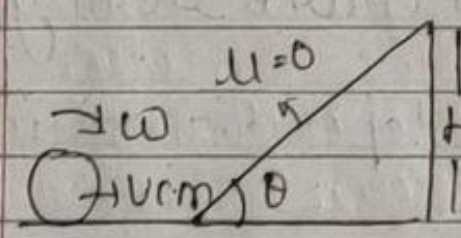 μ=0
ω
Vcm θ